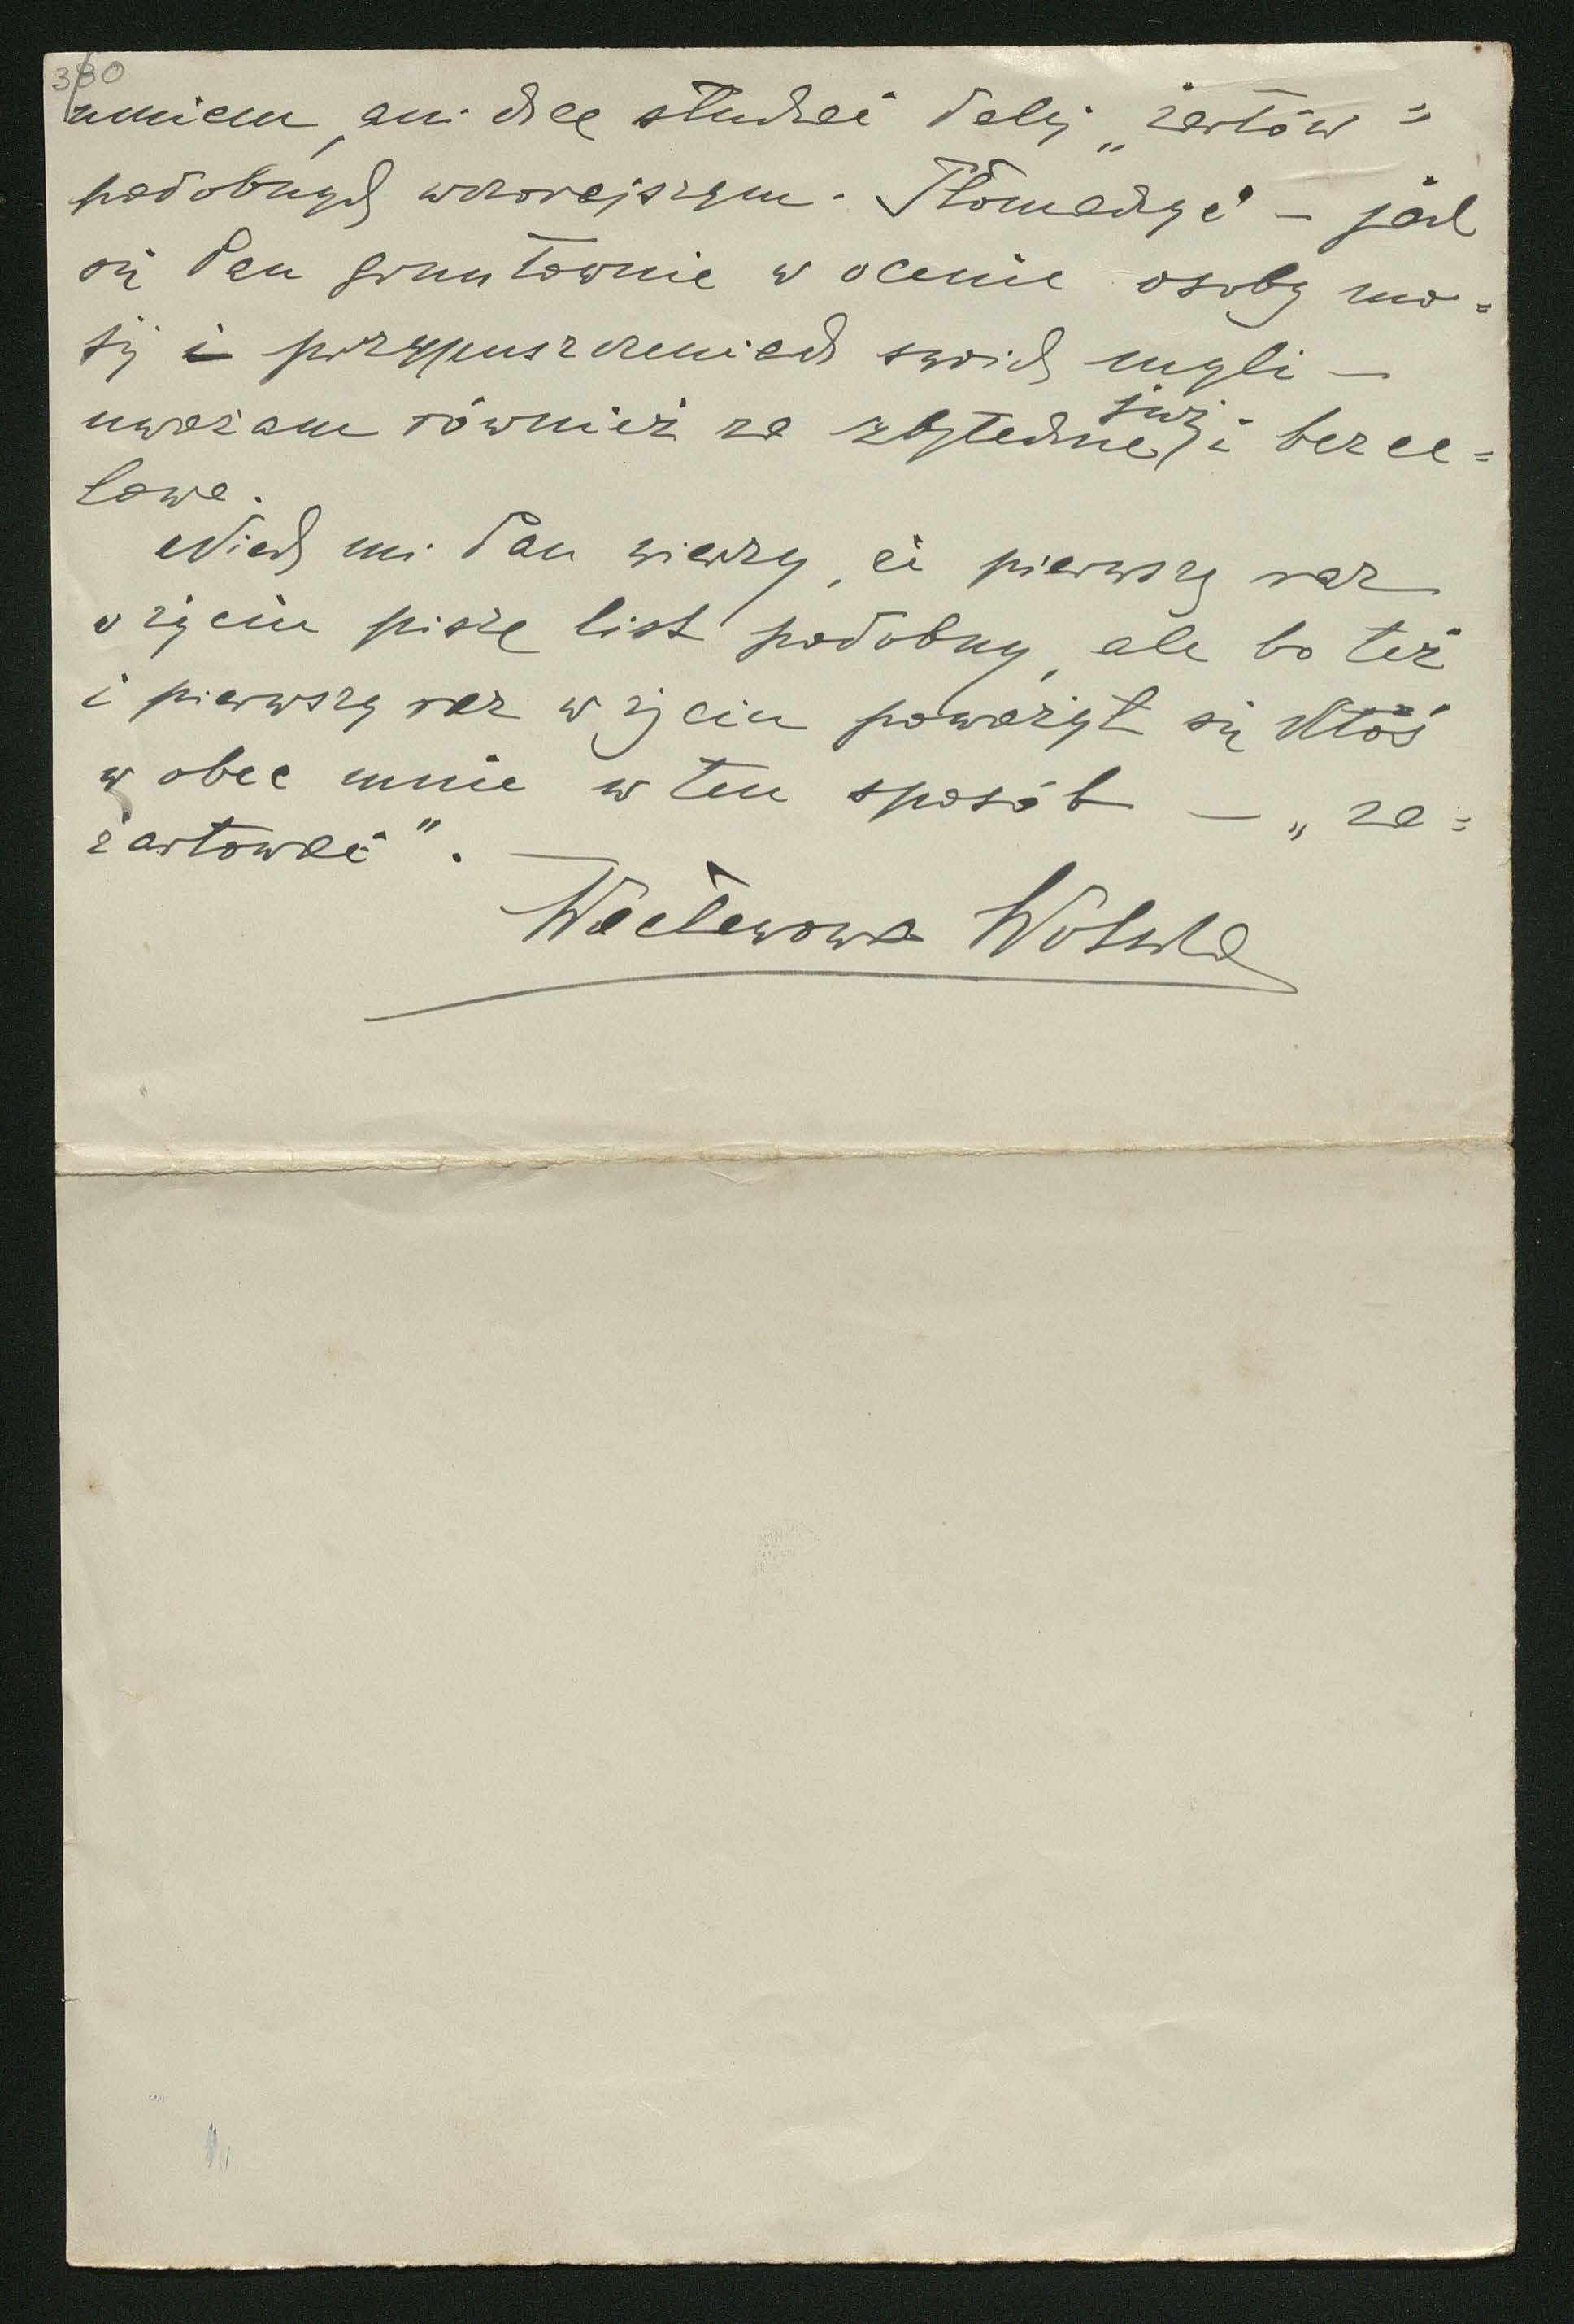 380
umiem, ani chcę słuchać dalej „żartów"
podobnych wczorajszym. Tłomaczyć — jak
się Pan gruntownie w ocenie osoby mo=
jéj i przypuszczeniach swoich myli —
uważam również za zbyteczne już i bezce=
lowe.
Niech mi Pan wierzy, że pierwszy raz
w życiu piszę list podobny, ale bo też
i pierwszy raz w życiu poważył się ktoś
wobec mnie w ten sposób — „za=
żartować".
Wacławowa Wolska